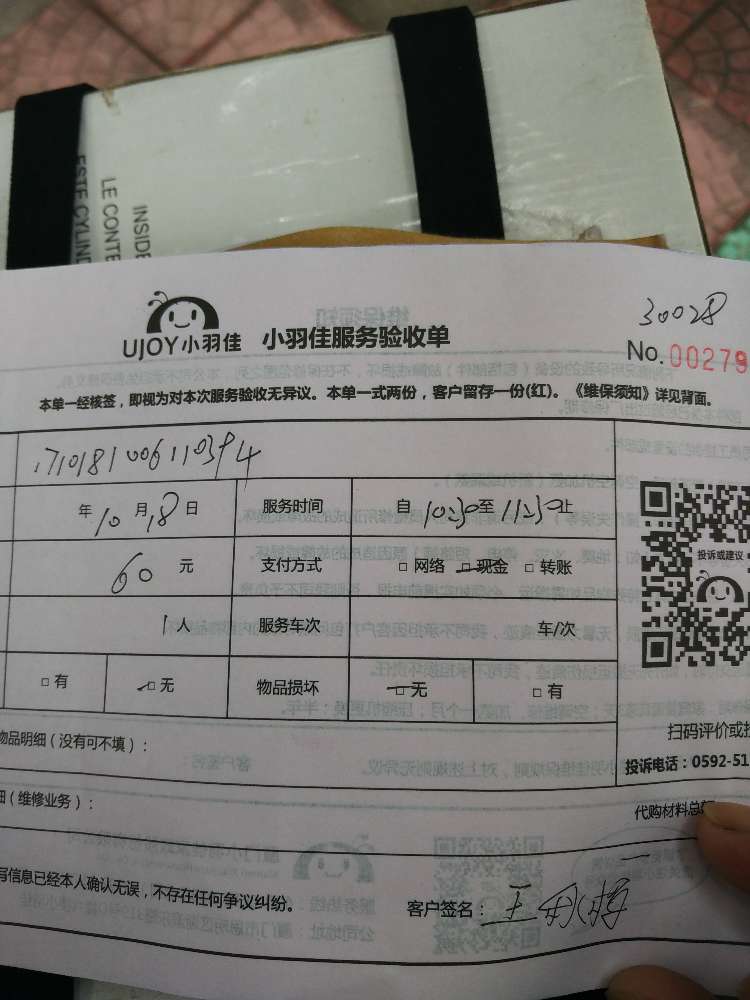 INSIDE
LE CONTE
ESTE CYLIND
30028
UJOY小羽佳 小羽佳服务验收单
No.00279
本单一经核签,即视为对本次服务验收无异议。本单一式两份,客户留存一份(红)。《维保须知》详见背面。
年10月18日 服务时间 自10:30至11:30止
60元 支付方式 □网络 □现金 □转账
投诉或建议
1人 服务车次 车/次
□有 □无 物品损坏 □无 □有
物品明细(没有可不填):
扫码评价或投
投诉电话:0592-51
细(维修业务):
代购材料总额
写信息已经本人确认无误,不存在任何争议纠纷。
客户签名:王